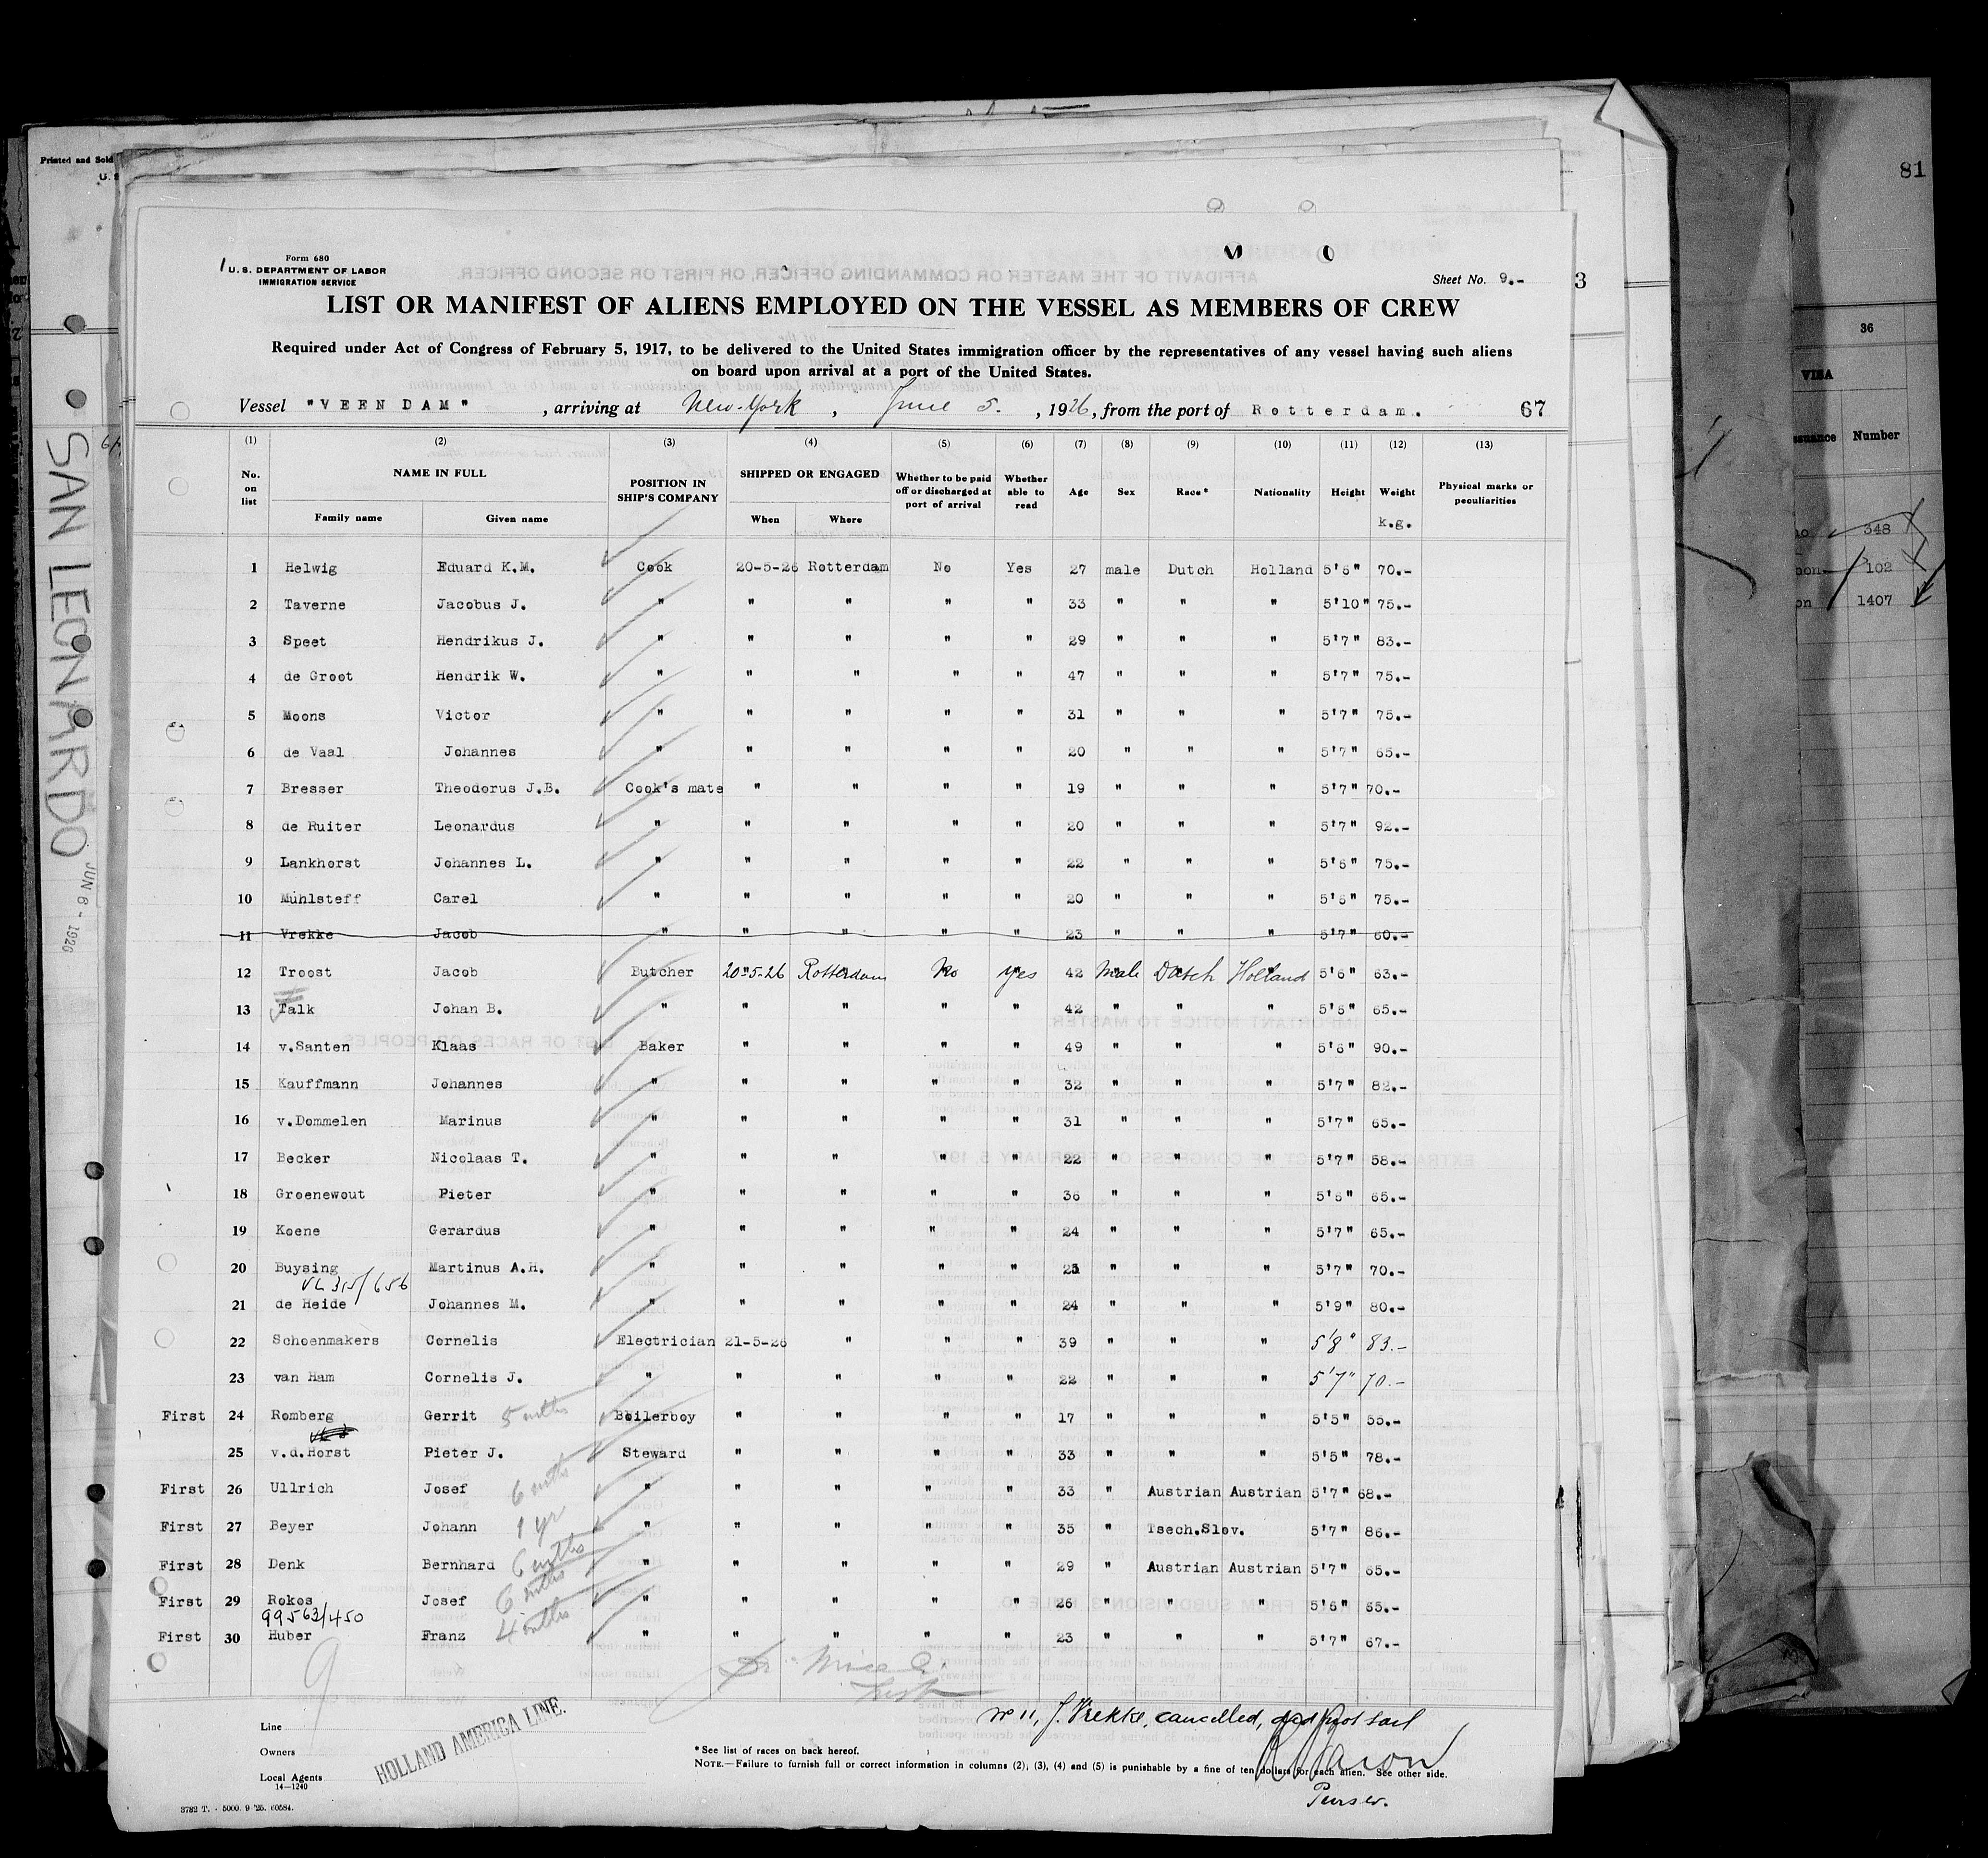 81
Printed and Sold
U. S
36
VISA
Number
348
102
1407
SAN LEONARDO
JUN 6 - 1926
3
Form 680
U. S. DEPARTMENT OF LABOR
IMMIGRATION SERVICE
Sheet No. 9.-
LIST OR MANIFEST OF ALIENS EMPLOYED ON THE VESSEL AS MEMBERS OF CREW
Required under Act of Congress of February 5, 1917, to be delivered to the United States immigration officer by the representatives of any vessel having such aliens
on board upon arrival at a port of the United States.
Vessel "VEENDAM" , arriving at New-York , June 5. , 1926, from the port of Rotterdam. 67
(1) (2) (3) (4) (5) (6) (7) (8) (9) (10) (11) (12) (13)
No. on list NAME IN FULL Family name Given name POSITION IN SHIP'S COMPANY SHIPPED OR ENGAGED When Where Whether to be paid off or discharged at port of arrival Whether able to read Age Sex Race* Nationality Height Weight k.g. Physical marks or peculiarities
1 Helwig Eduard K.M. Cook 20-5-26 Rotterdam No Yes 27 male Dutch Holland 5'6" 70.-
2 Taverne Jacobus J. " " " " " 33 " " " 5'10" 75.-
3 Speet Hendrikus J. " " " " " 29 " " " 5'7" 83.-
4 de Groot Hendrik W. " " " " " 47 " " " 5'7" 75.-
5 Moons Victor " " " " " 31 " " " 5'7" 75.-
6 de Vaal Johannes " " " " " 20 " " " 5'7" 65.-
7 Bresser Theodorus J.B. Cook's mate " " " " 19 " " " 5'7" 70.-
8 de Ruiter Leonardus " " " " " 20 " " " 5'7" 92.-
9 Lankhorst Johannes L. " " " " " 22 " " " 5'6" 75.-
10 Mühlsteff Carel " " " " " 20 " " " 5'6" 75.-
11 Vrekke Jacob " " " " " 23 " " " 5'7" 60.-
12 Troost Jacob Butcher 20-5-26 Rotterdam No yes 42 Male Dutch Holland 5'6" 63.-
13 Talk Johan B. " " " " " 42 " " " 5'6" 65.-
14 v.Santen Klaas Baker " " " " 49 " " " 5'6" 90.-
15 Kauffmann Johannes " " " " " 32 " " " 5'7" 82.-
16 v.Dommelen Marinus " " " " " 31 " " " 5'7" 65.-
17 Becker Nicolaas T. " " " " " 22 " " " 5'7" 58.-
18 Groenewout Pieter " " " " " 36 " " " 5'6" 65.-
19 Koene Gerardus " " " " " 24 " " " 5'7" 65.-
20 Buysing Martinus A.H. " " " " " 25 " " " 5'7" 70.-
VL 315/656
21 de Heide Johannes M. " " " " " 24 " " " 5'9" 80.-
22 Schoenmakers Cornelis Electrician 21-5-26 " " " 39 " " " 5'8" 83.-
23 van Ham Cornelis J. " " " " " 22 " " " 5'7" 70.-
First 24 Romberg Gerrit 5 mths Boilerboy " " " " 17 " " " 5'5" 55.-
25 v.d.Horst Pieter J. Steward " " " " 33 " " " 5'5" 78.-
First 26 Ullrich Josef 6 mths " " " " " 33 " Austrian Austrian 5'7" 68.-
First 27 Beyer Johann 1 yr " " " " " 35 " Tsech.Slov. 5'7" 86.-
First 28 Denk Bernhard 6 mths " " " " " 29 " Austrian Austrian 5'7" 65.-
First 29 Rokos Josef 6 mths " " " " " 26 " " " 5'6" 65.-
99563/450
First 30 Huber Franz 4 mths " " " " " 23 " " " 5'7" 67.-
9
No 11, J. Vrekke, cancelled, did not sail
Purser.
Line
Owners
Local Agents
HOLLAND AMERICA LINE.
14—1240
* See list of races on back hereof.
NOTE.—Failure to furnish full or correct information in columns (2), (3), (4) and (5) is punishable by a fine of ten dollars for each alien. See other side.
3782 T. - 5000. 9 '25. 60584.